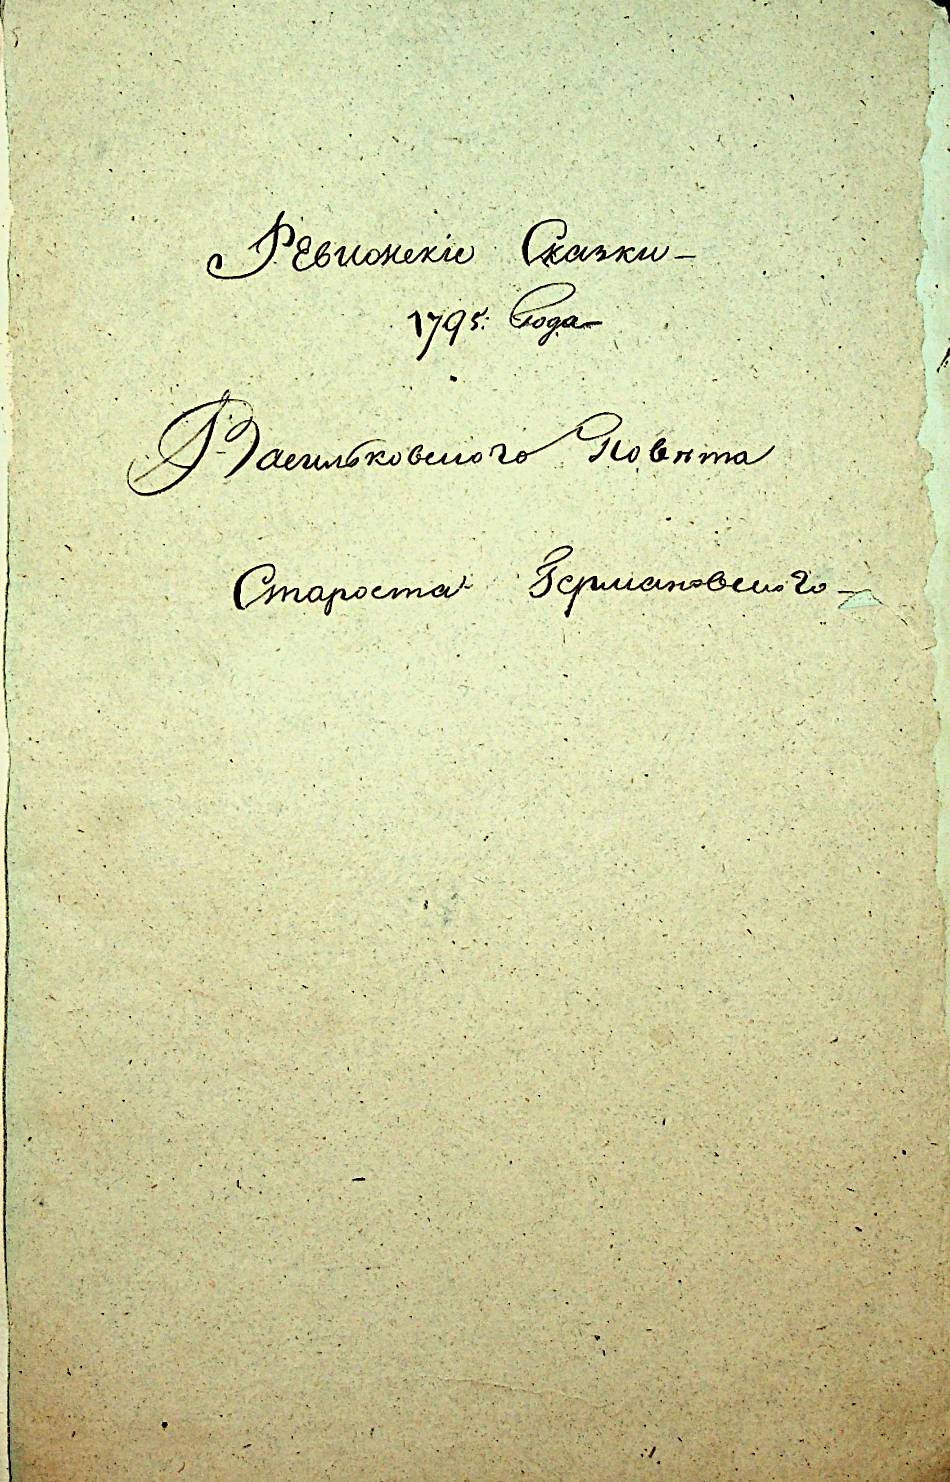 Ревизскіе Сказки
1795: Года
Васильковского Повѣта
Староста Германовского